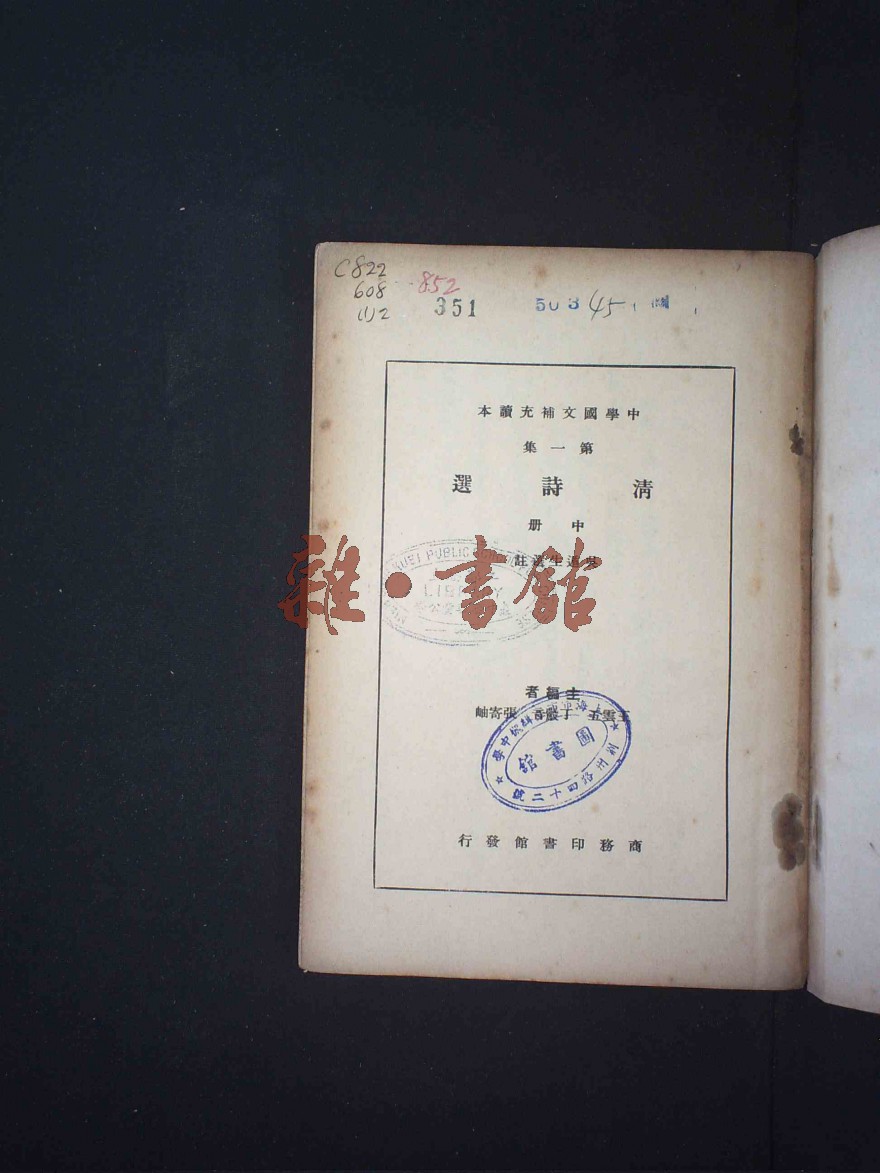 C822
608
(1)2
852
351
503
45
中學國文補充讀本
第一集
清詩選
中册
生選註
雜·書館
PUBLIC
LIBRARY
主編者
王雲五 丁 張寄岫
圖書館
荆州路四十二號
商務印書館發行